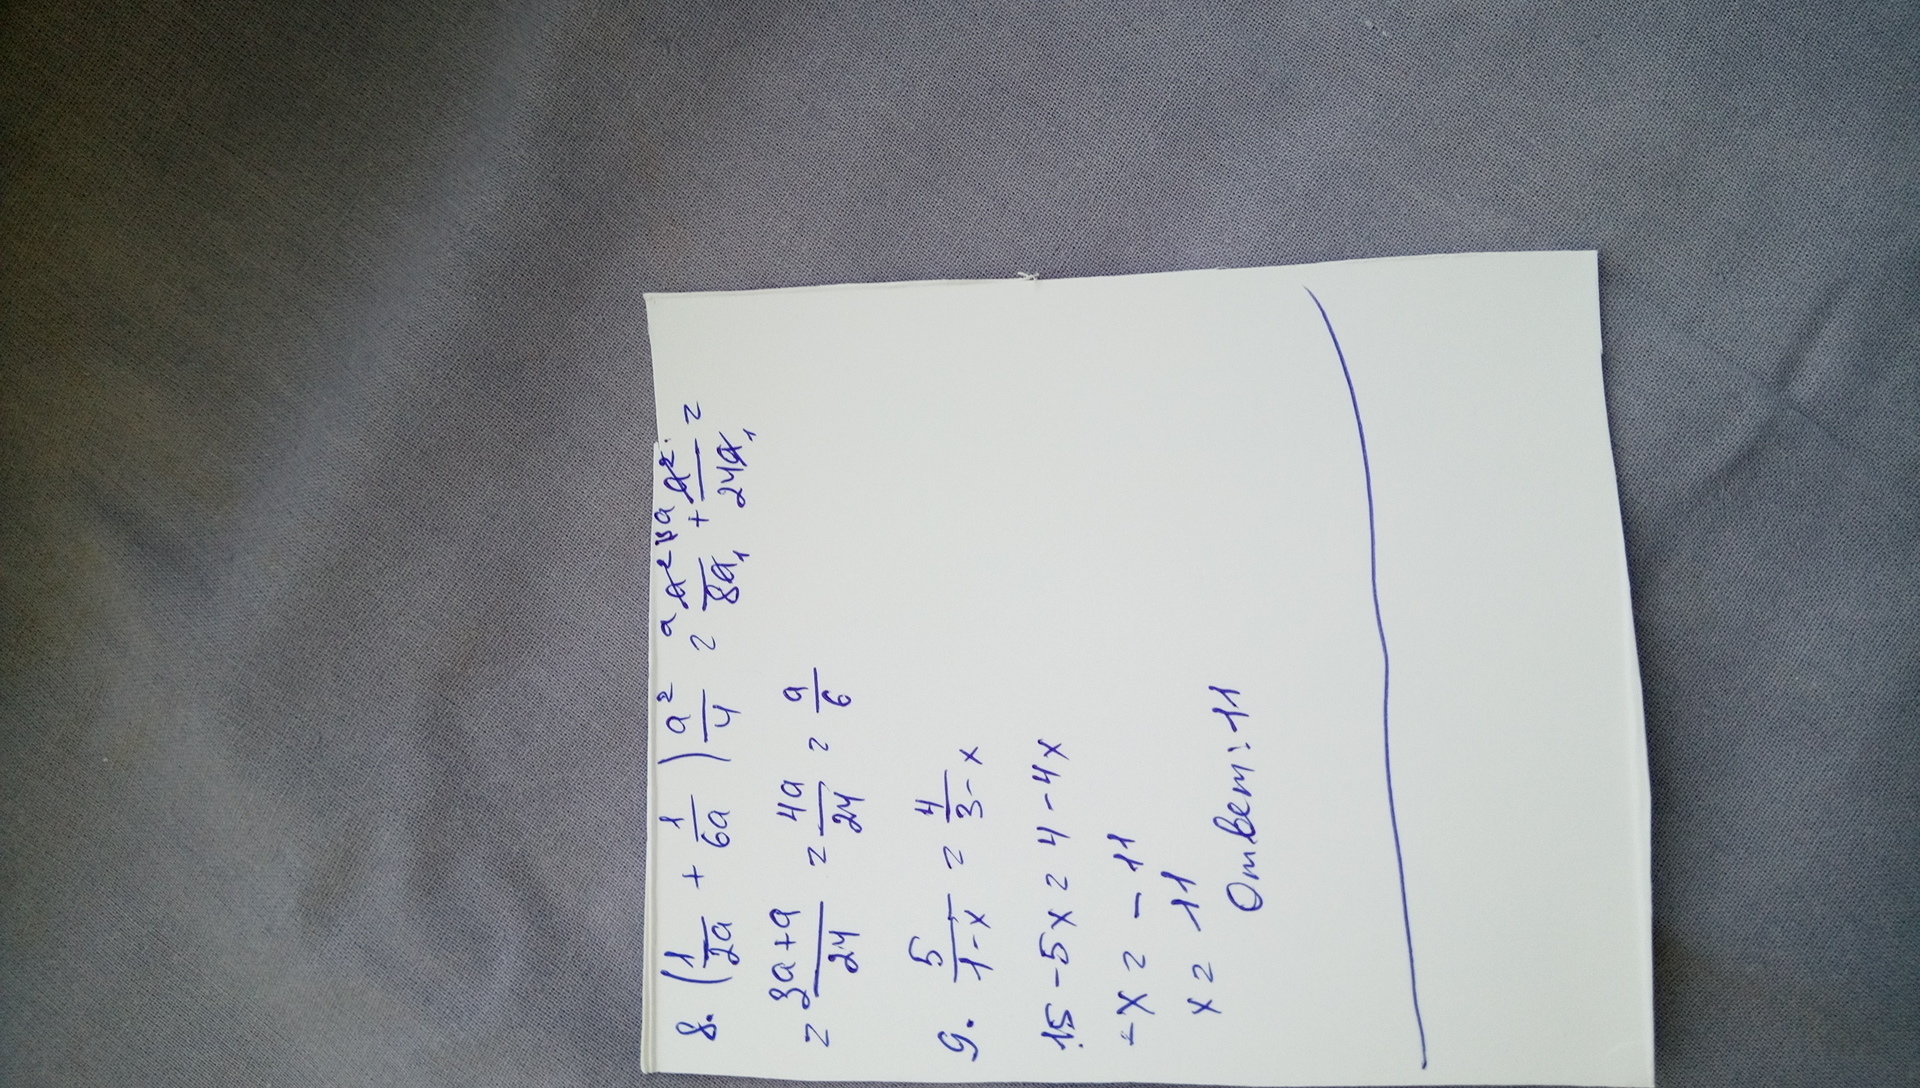 8. (1/2a + 1/6a) a²/4 = a a²\3a/8a₁ + a²/24a₁ =
= 3a+a/24 = 4a/24 = a/6
9. 5/1-x = 4/3-x
15-5x=4-4x
-x=-11
x=11
Ответ: 11